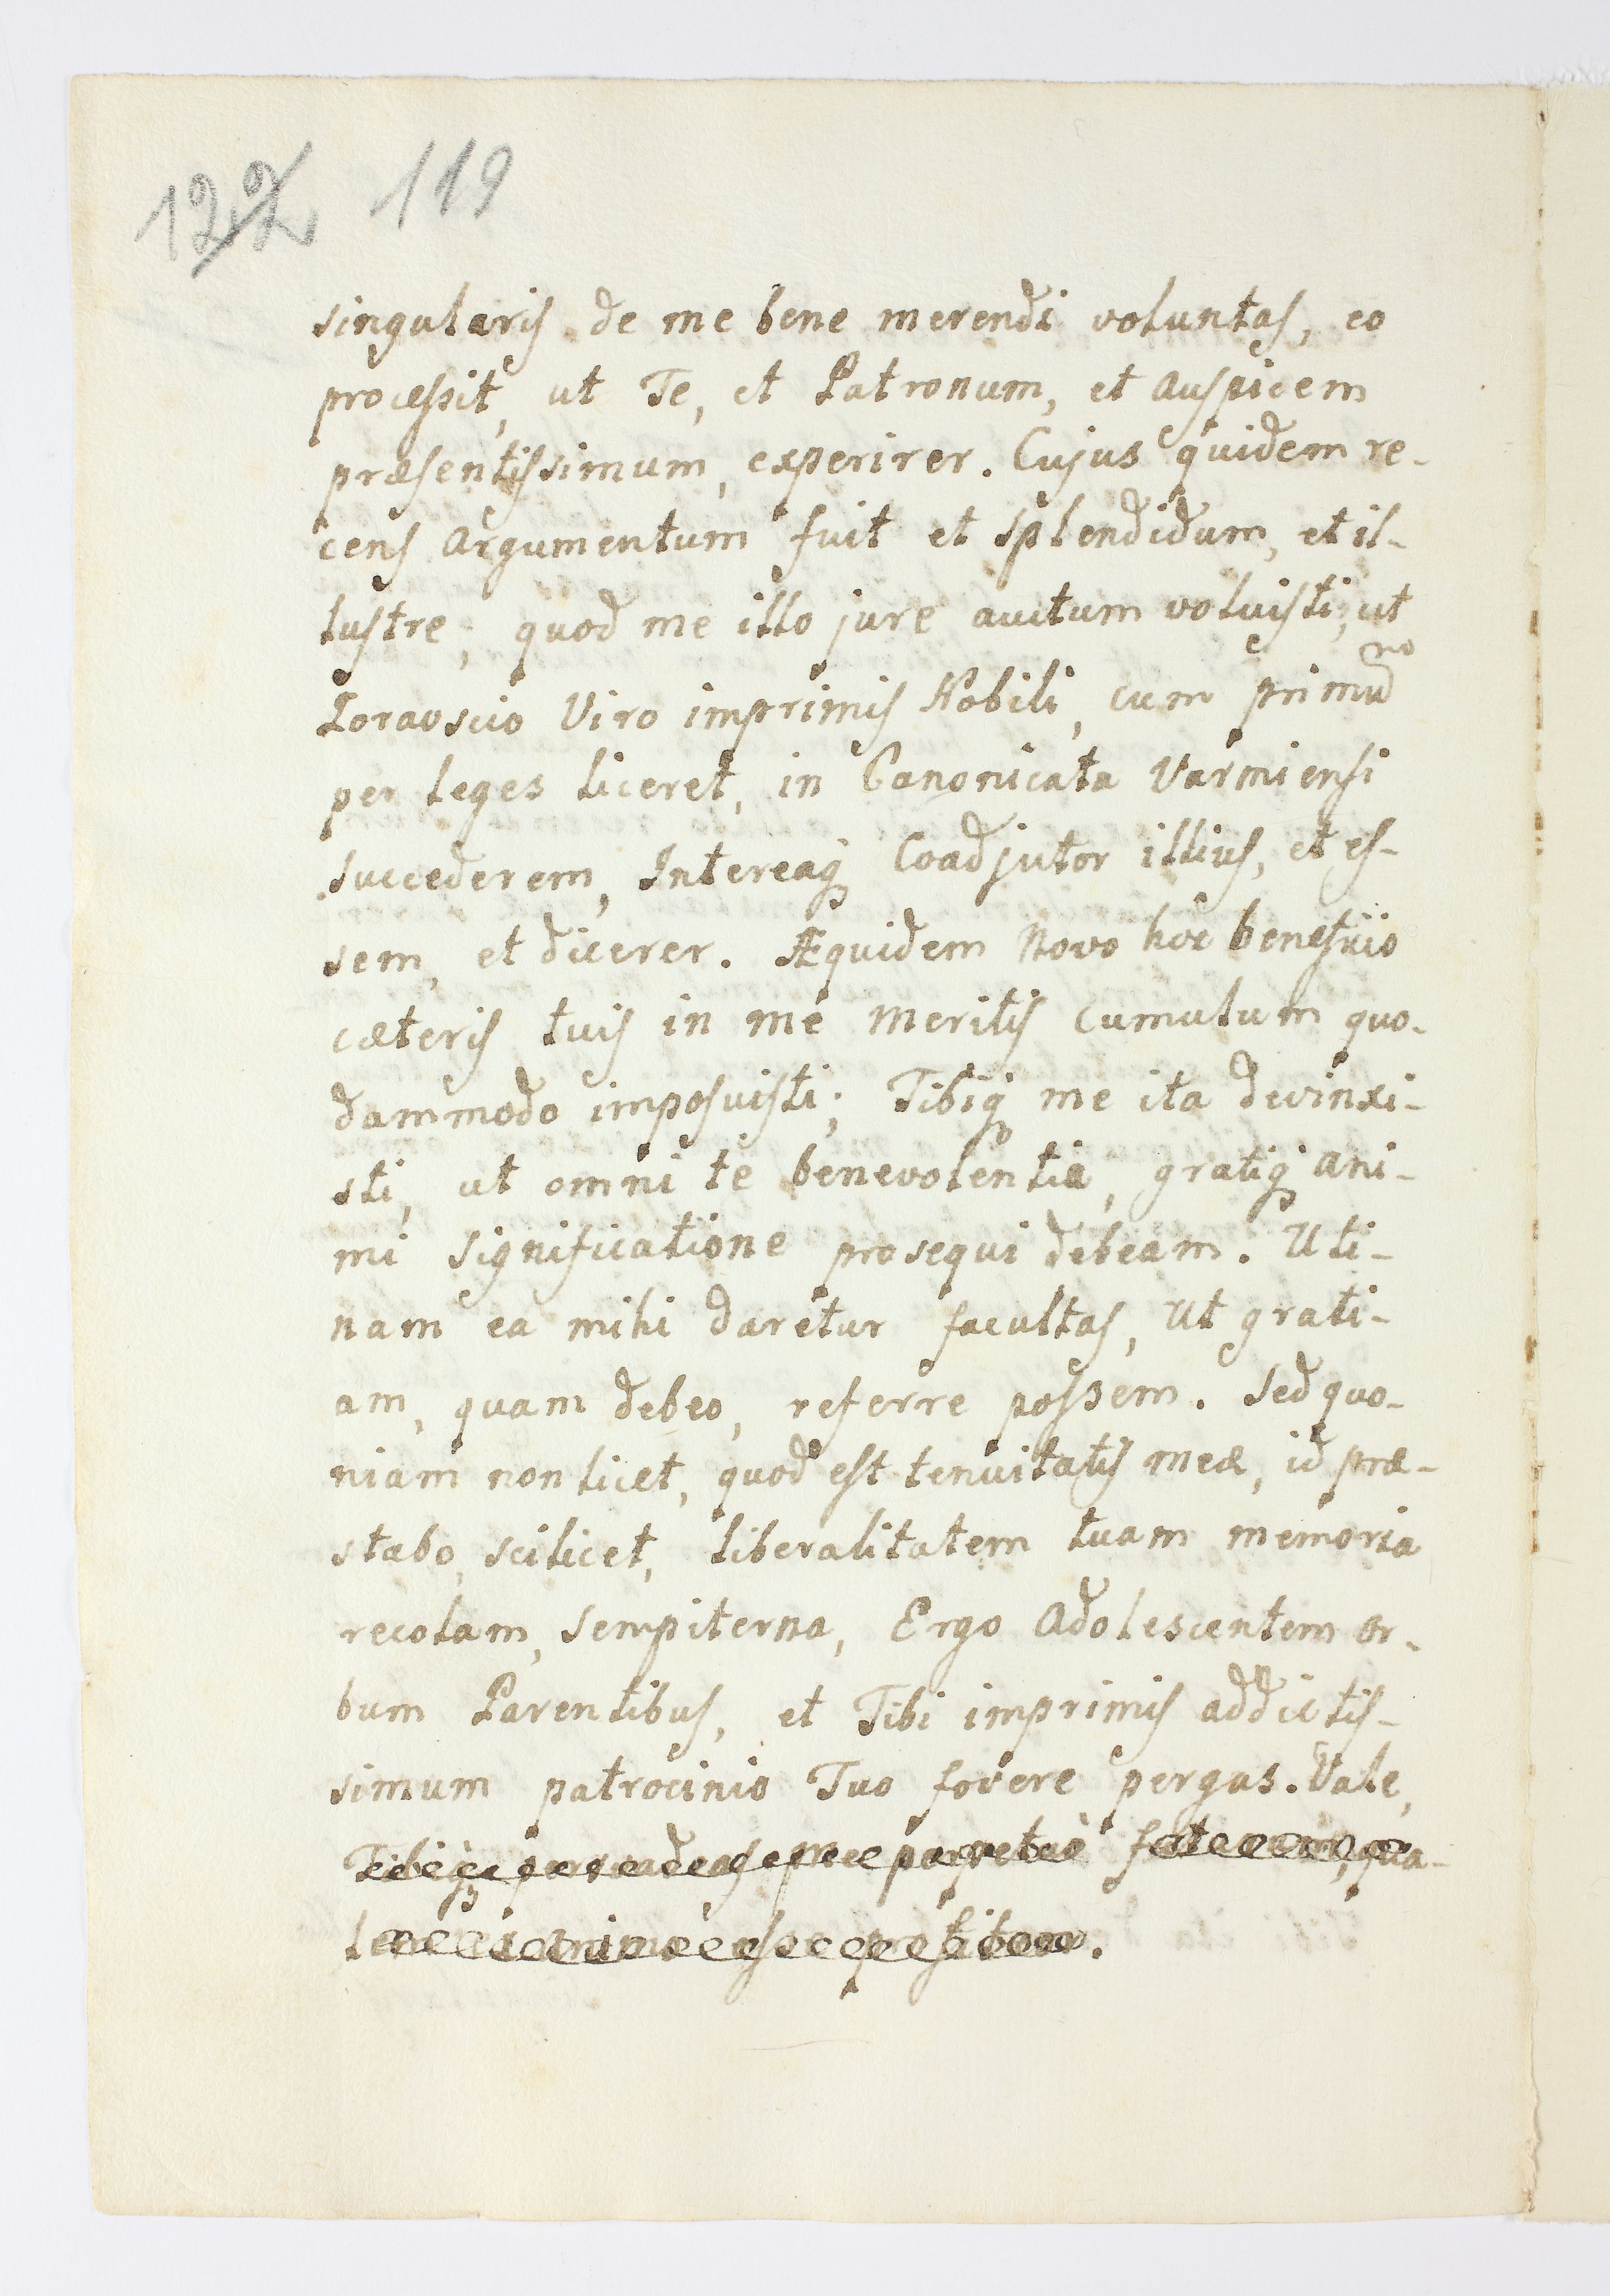 122 119
singularis de me bene merendi voluntas, eo
processit, ut Te, et Patronum, et Auspicem
præsentissimum, experirer. Cujus quidem re-
cens Argumentum fuit et splendidum, et il-
lustre, quod me illo jure auctum voluisti, ut
no
Loraoscio Viro imprimis Nobili, cum primu
per leges liceret, in Canonicata Varmiensi
succederem, Intereaq Coadjutor illius, et es-
sem, et dicerer. Æquidem Novo hoc beneficio
cæteris tuis in me Meritis Cumulum quo-
dammodo imposuisti; Tibiq me ita devinxi-
sti, ut omni te benevolentia, gratiq ani-
mi significatione prosequi debeam. Uti-
nam ea mihi daretur facultas, Ut grati-
am, quam debeo, referre possem. Sed quo-
niam non licet, quod est tenuitatis meæ, id præ-
stabo, scilicet, liberalitatem tuam memoria
recolam, sempiterna, Ergo Adolescentem or-
bum Parentibus, et Tibi imprimis addictis-
simum patrocinio Tuo fovere pergas. Vale,
Tibiq persuadeas me perpetuò qua-
animo esse